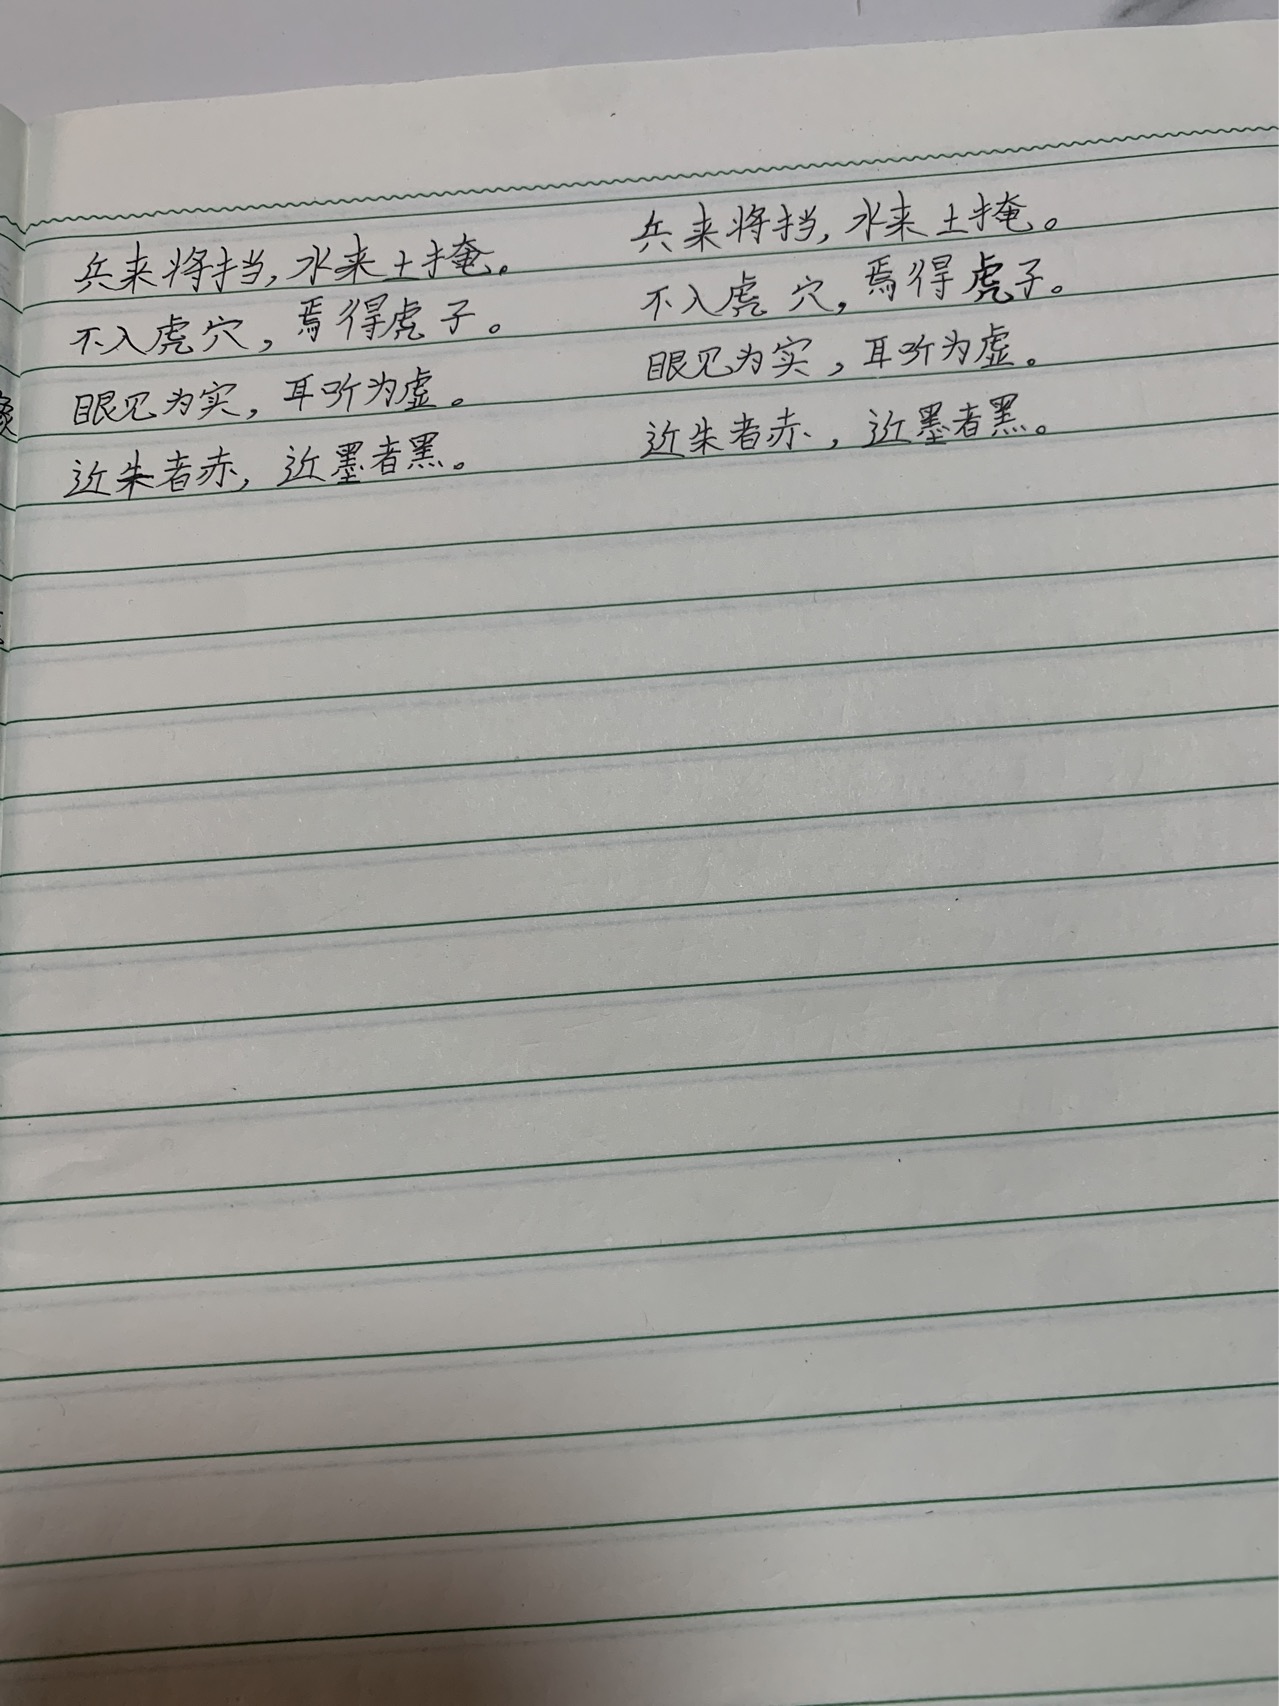 兵来将挡，水来土掩。 兵来将挡，水来土掩。
不入虎穴，焉得虎子。 不入虎穴，焉得虎子。
眼见为实，耳听为虚。 眼见为实，耳听为虚。
近朱者赤，近墨者黑。 近朱者赤，近墨者黑。